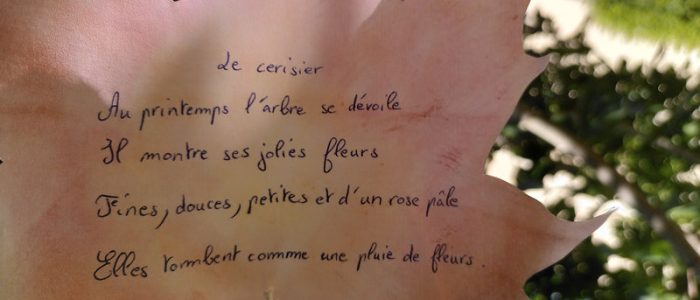 Le cerisier
Au printemps l'arbre se dévoile
Il montre ses jolies fleurs
Fines, douces, petites et d'un rose pâle
Elles tombent comme une pluie de fleurs.